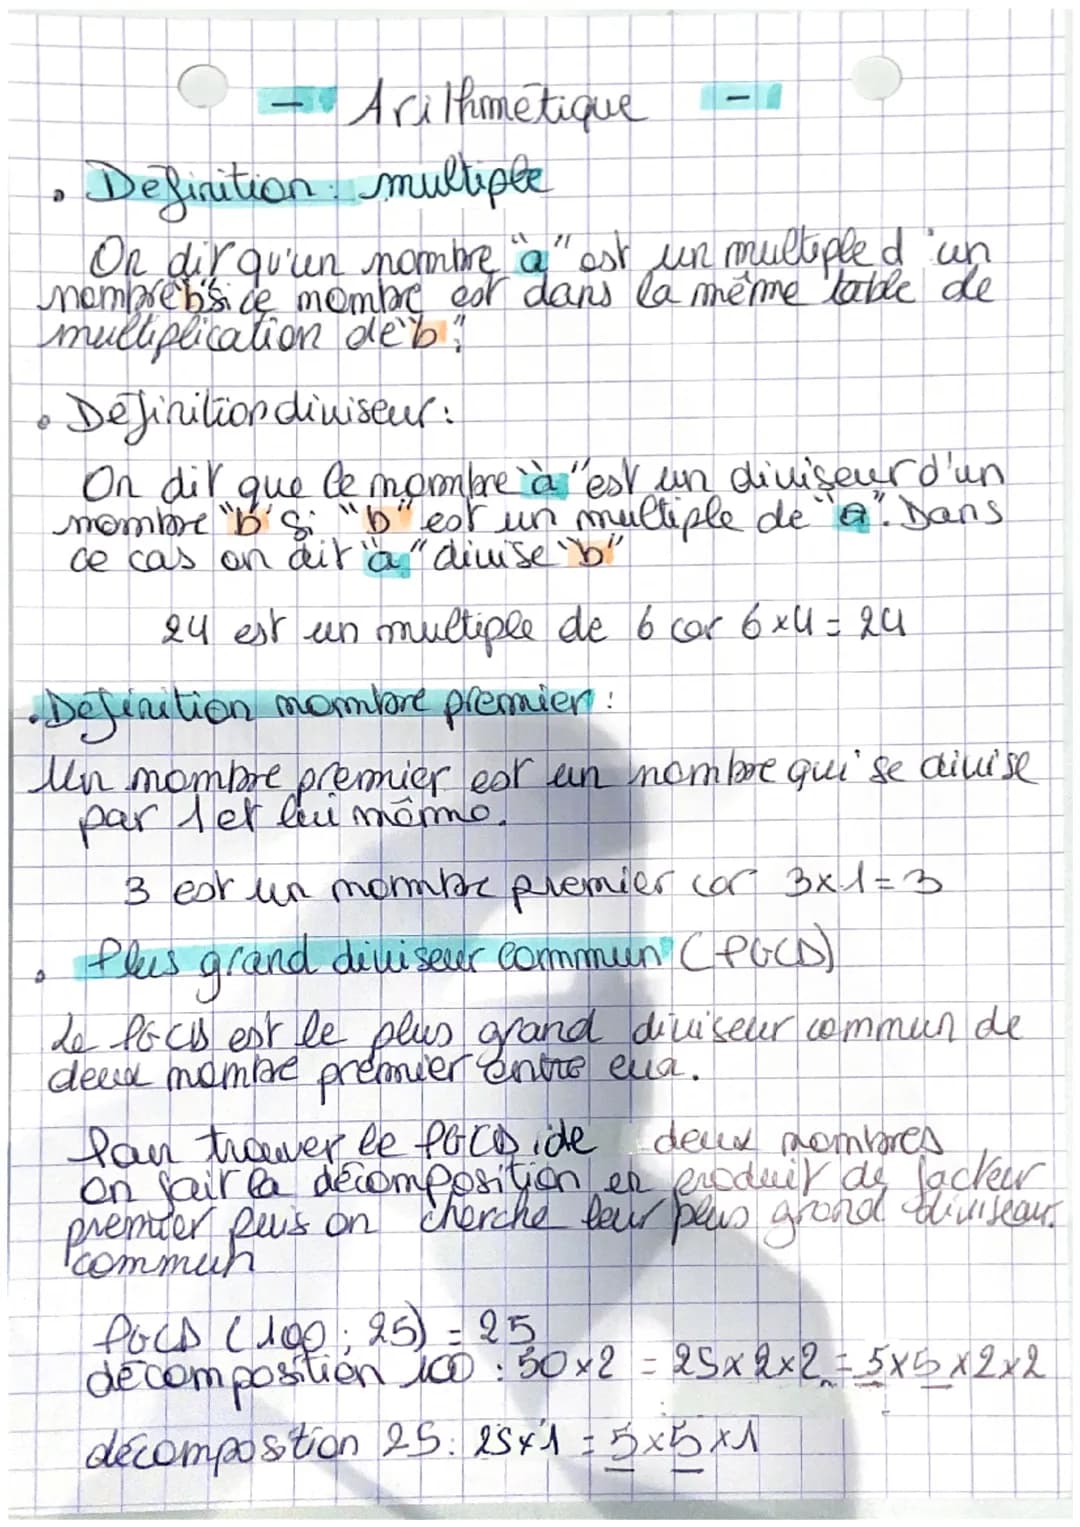 - Arithmétique -
• Définition : multiple
On dit qu'un nombre "a" est un multiple d'un
nombre b si ce nombre est dans la même table de
multiplication de "b".
• Définition diviseur :
On dit que le nombre "a" est un diviseur d'un
nombre "b" si "b" est un multiple de "a". Dans
ce cas on dit "a" divise "b"
24 est un multiple de 6 car 6x4 = 24
• Définition nombre premier :
Un nombre premier est un nombre qui se divise
par 1 et lui même.
3 est un nombre premier car 3x1=3
• Plus grand diviseur commun (PGCD)
Le PGCD est le plus grand diviseur commun de
deux nombre premier entre eux.
Pour trouver le PGCD de deux nombres
on fait la décomposition en produit de facteur
premier puis on cherche leur plus grand diviseur
commun
PGCD (100 ; 25) = 25
décomposition 100 : 50x2 = 25x2x2 = 5x5x2x2
décomposition 25 : 25x1 = 5x5x1